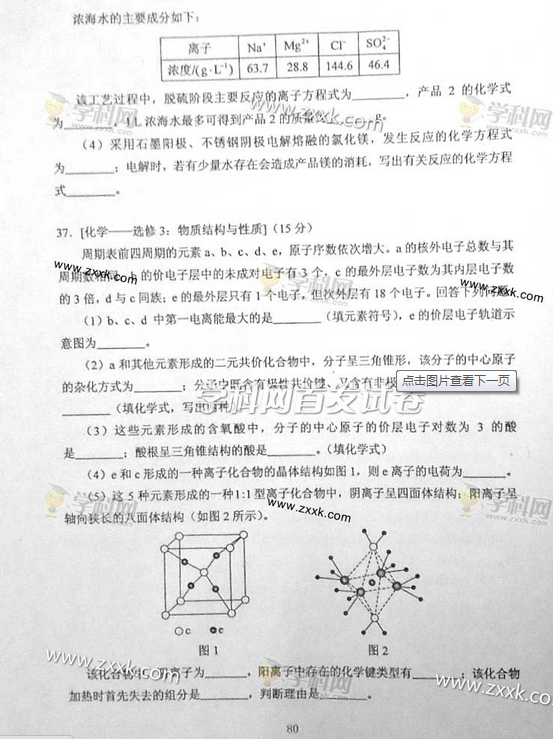 浓海水的主要成分如下：
离子 Na⁺ Mg²⁺ Cl⁻ SO₄²⁻
浓度/(g·L⁻¹) 63.7 28.8 144.6 46.4
该工艺过程中，脱硫阶段主要反应的离子方程式为________，产品 2 的化学式
为________，1L 浓海水最多可得到产品 2 的质量为________g。
（4）采用石墨阳极、不锈钢阴极电解熔融的氯化镁，发生反应的化学方程式
为________；电解时，若有少量水存在会造成产品镁的消耗，写出有关反应的化学方程
式________。
37. [化学——选修 3：物质结构与性质]（15 分）
周期表前四周期的元素 a、b、c、d、e，原子序数依次增大。a 的核外电子总数与其
周期数相同，b 的价电子层中的未成对电子有 3 个，c 的最外层电子数为其内层电子数
的 3 倍，d 与 c 同族；e 的最外层只有 1 个电子，但次外层有 18 个电子。回答下列问题：
（1）b、c、d 中第一电离能最大的是________（填元素符号），e 的价层电子轨道示
意图为________。
（2）a 和其他元素形成的二元共价化合物中，分子呈三角锥形，该分子的中心原子
的杂化方式为________；分子中既含有极性共价键、又含有非极
点击图片查看下一页
________（填化学式，写出两种）。
（3）这些元素形成的含氧酸中，分子的中心原子的价层电子对数为 3 的酸
是________；酸根呈三角锥结构的酸是________。（填化学式）
（4）e 和 c 形成的一种离子化合物的晶体结构如图 1，则 e 离子的电荷为________。
（5）这 5 种元素形成的一种 1:1 型离子化合物中，阴离子呈四面体结构；阳离子呈
轴向狭长的八面体结构（如图 2 所示）。
c e
图 1 图 2
该化合物中，阴离子为________，阳离子中存在的化学键类型有________；该化合物
加热时首先失去的组分是________，判断理由是________。
80
学科网
www.zxxk.com
学科网首发试卷